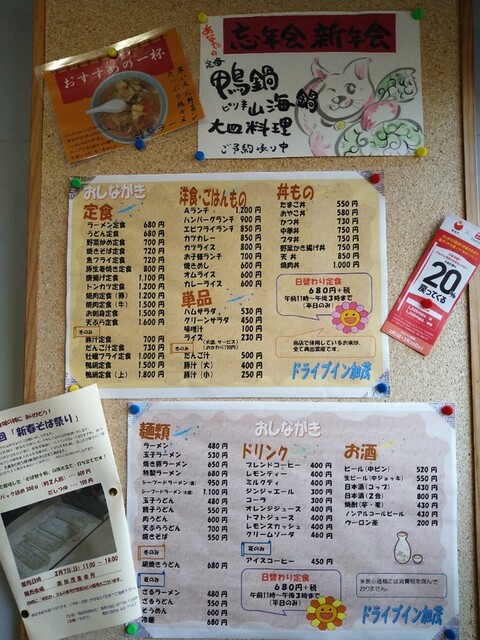 おすすめの一杯
忘年会 新年会
鴨鍋
ピリ辛 山海鍋
大皿料理
ご予約承り中
20%
戻ってくる
おしながき
定食
ラーメン定食 680円
うどん定食 680円
野菜炒め定食 700円
焼きそば定食 720円
魚フライ定食 720円
豚生姜焼き定食 800円
唐揚げ定食 1.100円
トンカツ定食 1.200円
焼肉定食(豚) 1.200円
焼肉定食(牛) 1.500円
お刺身定食 1.500円
天ぷら定食 1.600円
冬のみ
豚汁定食 700円
だんご汁定食 730円
牡蠣フライ定食 1.000円
鴨鍋定食 1.500円
鴨鍋定食(上) 1.800円
洋食・ごはんもの
Aランチ 1.200円
ハンバーグランチ 900円
エビフライランチ 850円
カツカレー 850円
カツライス 800円
お子様ランチ 700円
焼きめし 600円
オムライス 600円
カレーライス 600円
単品
ハムサラダ 530円
グリーンサラダ 450円
味噌汁 100円
ライス 230円
冬のみ
だんご汁 500円
豚汁(大) 400円
豚汁(小) 250円
丼もの
たまご丼 550円
おやこ丼 580円
かつ丼 730円
中華丼 750円
ブタ丼 750円
野菜かき揚げ丼 750円
天丼 850円
焼肉丼 1.000円
日替わり定食
680円+税
午前11時~午後3時まで
(平日のみ)
当店で使用しているお米は、
全て県出雲産です。
ドライブイン加茂
おしながき
麺類
ラーメン 480円
玉子ラーメン 530円
焼き豚ラーメン 650円
特製ラーメン 680円
シーフードラーメン(並) 950円
シーフードラーメン(大盛) 1.100円
玉子うどん 480円
親子うどん 550円
肉うどん 600円
天ぷらうどん 700円
焼きそば 550円
冬のみ
鍋焼きうどん 680円
夏のみ
ざるラーメン 480円
ざるうどん 550円
そうめん 600円
冷麺 680円
ドリンク
ブレンドコーヒー 400円
レモンティー 400円
ミルクティ 400円
ジンジャエール 300円
コーラ 300円
オレンジジュース 400円
トマトジュース 400円
レモンスカッシュ 400円
クリームソーダ 460円
夏のみ
アイスコーヒー 450円
日替わり定食
680円+税
午前11時~午後3時まで
(平日のみ)
お酒
ビール(中ビン) 520円
生ビール(中ジョッキ) 550円
日本酒(コップ) 430円
日本酒(2合) 800円
焼酎(芋・麦) 430円
ノンアルコールビール 430円
ウーロン茶 200円
※表示価格には消費税を含んで
おりません。
ドライブイン加茂
「新春そば祭り」